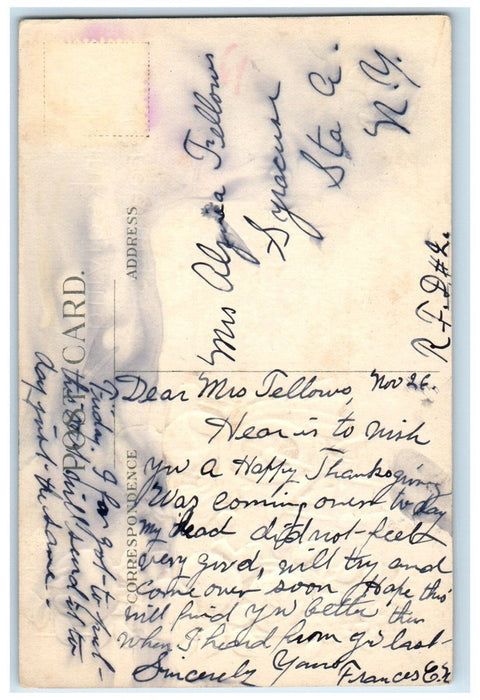 POST CARD.
CORRESPONDENCE
ADDRESS
Mrs Fellows
Syracuse
Sta A.
N.Y.
R.F.D #2.
Dear Mrs Fellows, Nov 26.
Hear is to wish
you a Happy Thanksgiving
Was coming over to day
my head did not feel
very good, will try and
come over soon Hope this
will find you better then
when I heard from you last-
Sincerely Yours
Frances E.
Friday I for got to mail
this so will send it to
day just the same -